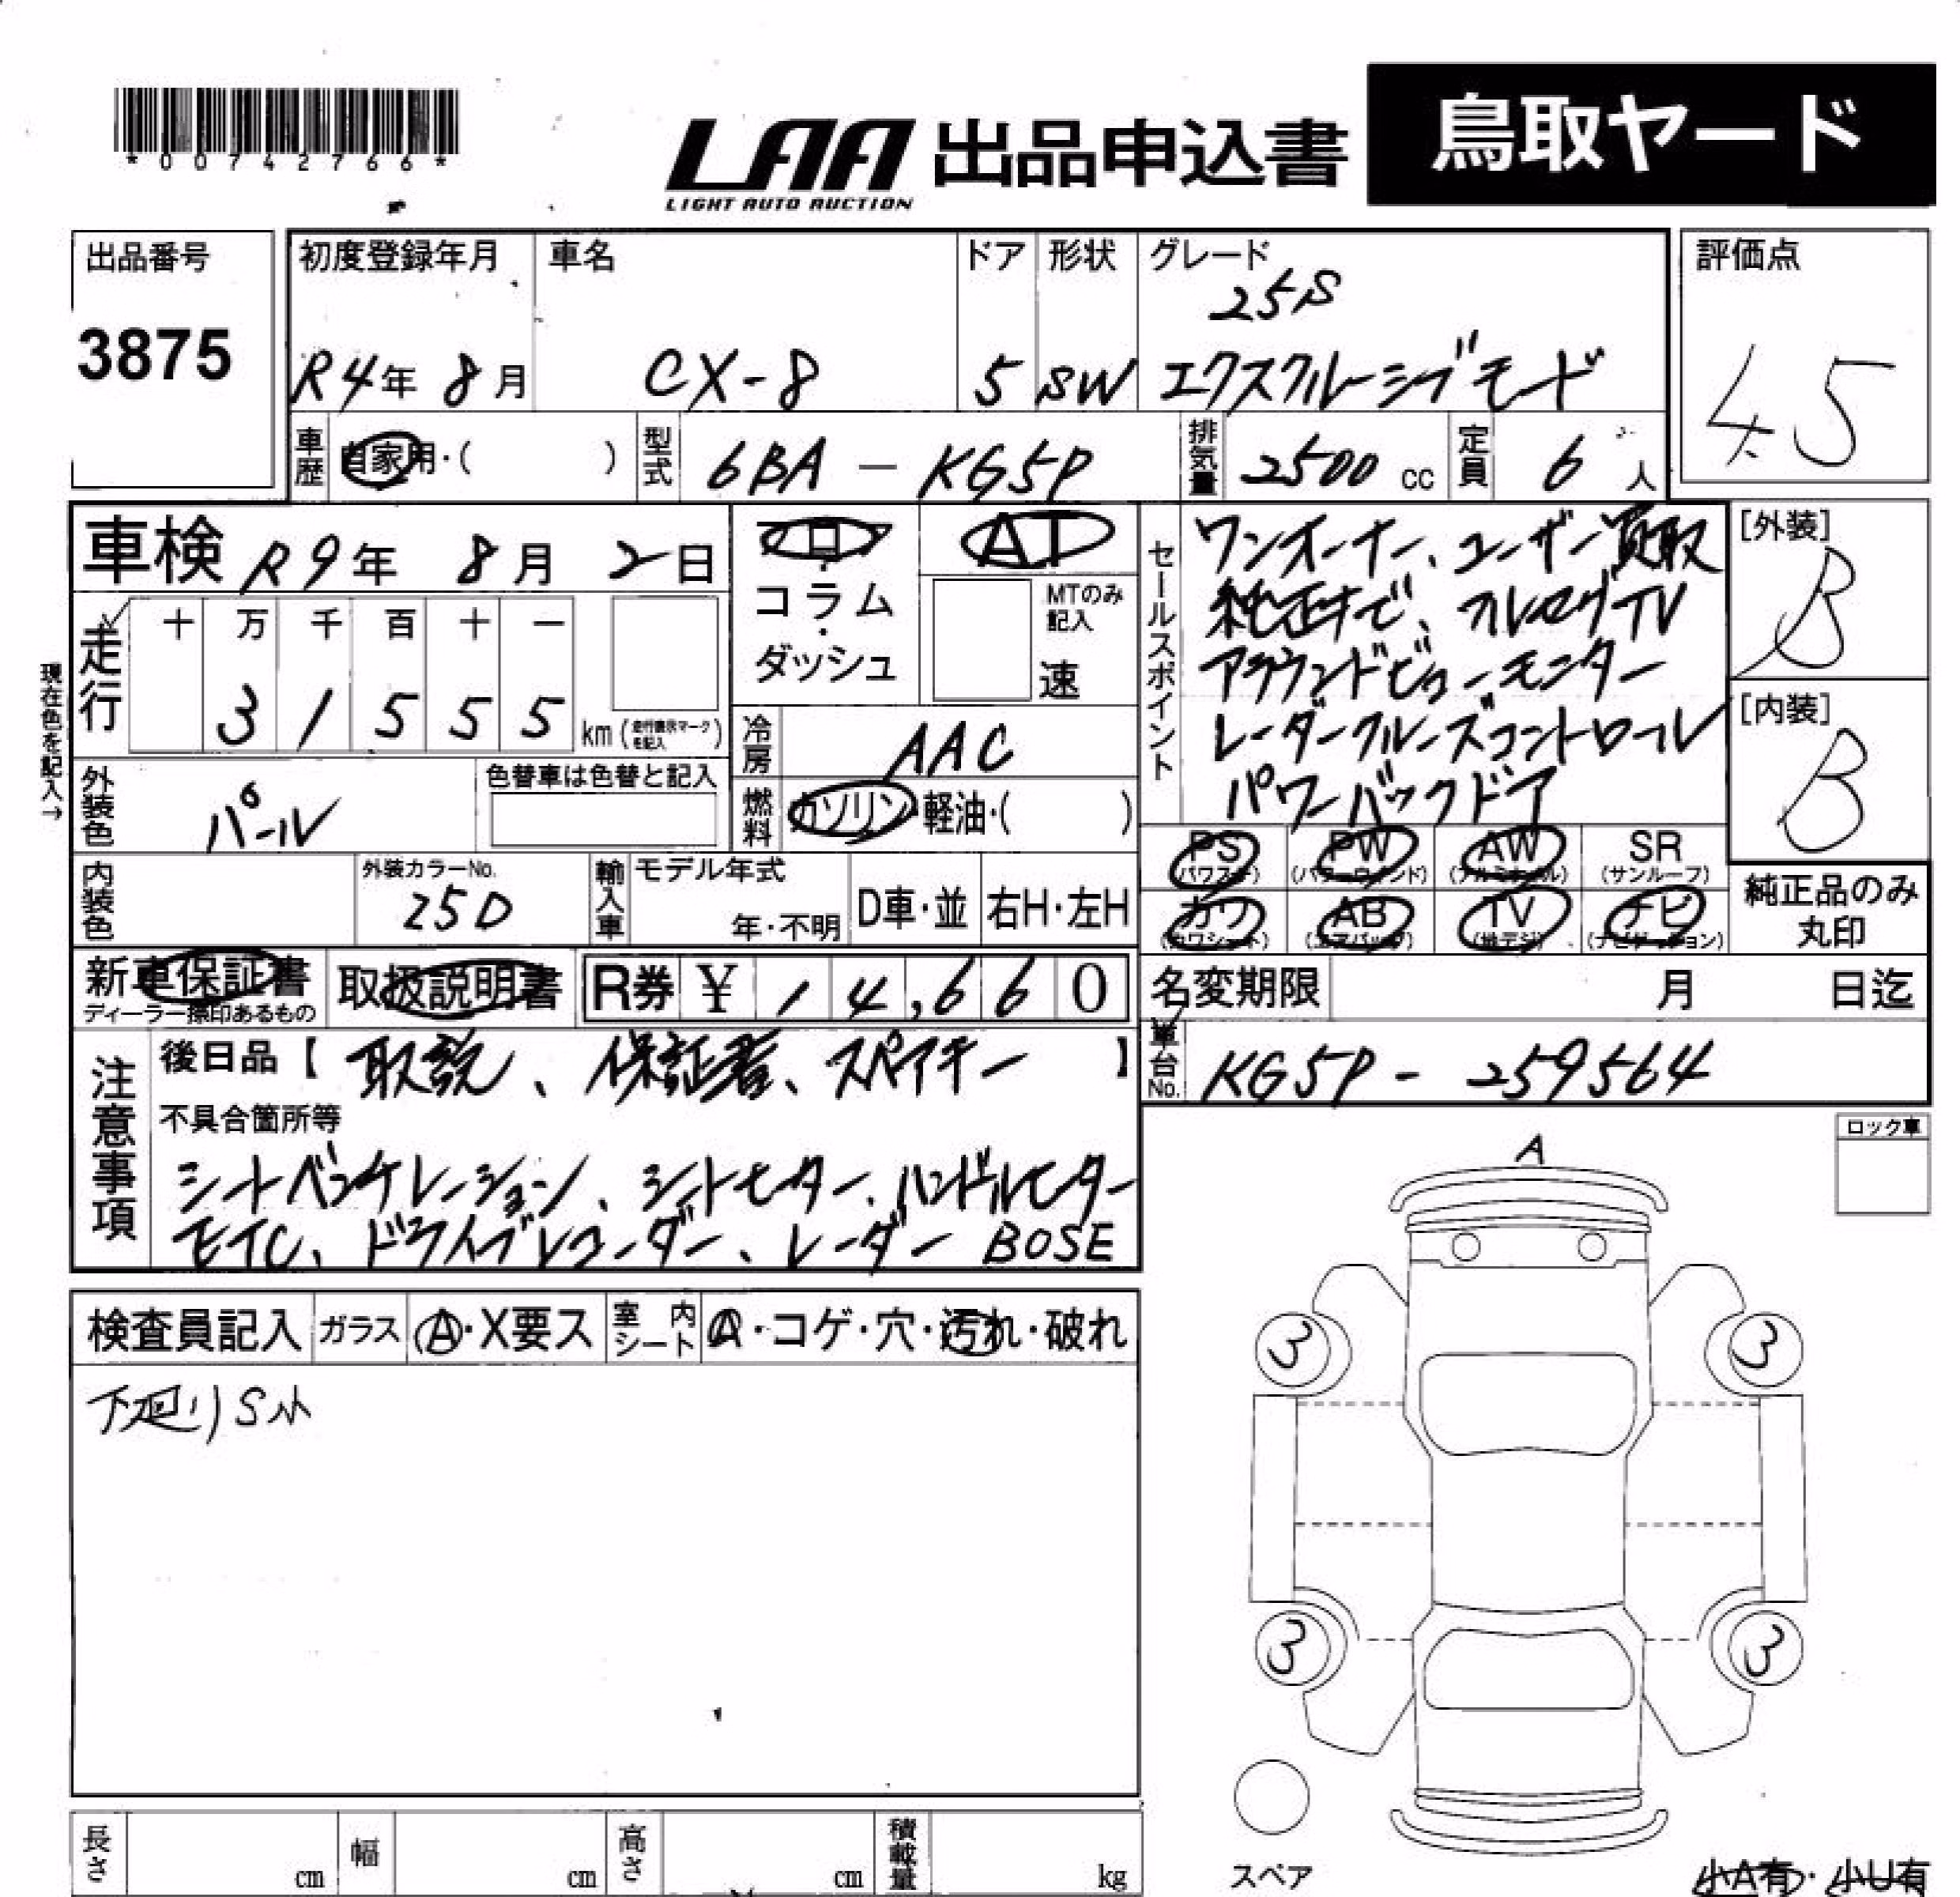 *00742766*
LAA 出品申込書 鳥取ヤード
LIGHT AUTO AUCTION
出品番号
3875
初度登録年月
R4年 8月
車名
CX-8
ドア
5
形状
SW
グレード
25S
エクスクルーシブモード
評価点
4.5
車歴 自家用・( )
型式 6BA - KG5P
排気量 2500 cc
定員 6 人
車検 R9年 8月 2日
現在色を記入→
走行
十 万 千 百 十 一
3 1 5 5 5 km (走行表示マークを記入)
フロア
・
コラム
・
ダッシュ
AT
MTのみ記入
速
冷房 AAC
燃料 ガソリン・軽油・( )
外装色 パール
色替車は色替と記入
内装色
外装カラーNo.
25D
輸入車
モデル年式
年・不明
D車・並
右H・左H
セールスポイント
ワンオーナー、ユーザー買取
純正ナビ、フルセグTV
アラウンドビューモニター
レーダークルーズコントロール
パワーバックドア
[外装]
B
[内装]
B
PS (パワステ) PW (パワーウインド) AW (アルミホイル) SR (サンルーフ)
カワ (カワシート) AB (エアバッグ) TV (地デジ) ナビ (ナビゲーション)
純正品のみ
丸印
新車保証書
ディーラー捺印あるもの
取扱説明書
R券 ¥ 14,660
名変期限 月 日迄
車台No. KG5P - 259564
注意事項
後日品【 取説、保証書、スペアキー 】
不具合箇所等
シートベンチレーション、シートヒーター、ハンドルヒーター
ETC、ドライブレコーダー、レーダー BOSE
ロック車
検査員記入 ガラス A・X要ス 室内シート A・コゲ・穴・汚れ・破れ
下廻りS小
A
3 3
3 3
スペア
小A有・小U有
長さ cm 幅 cm 高さ cm 積載量 kg